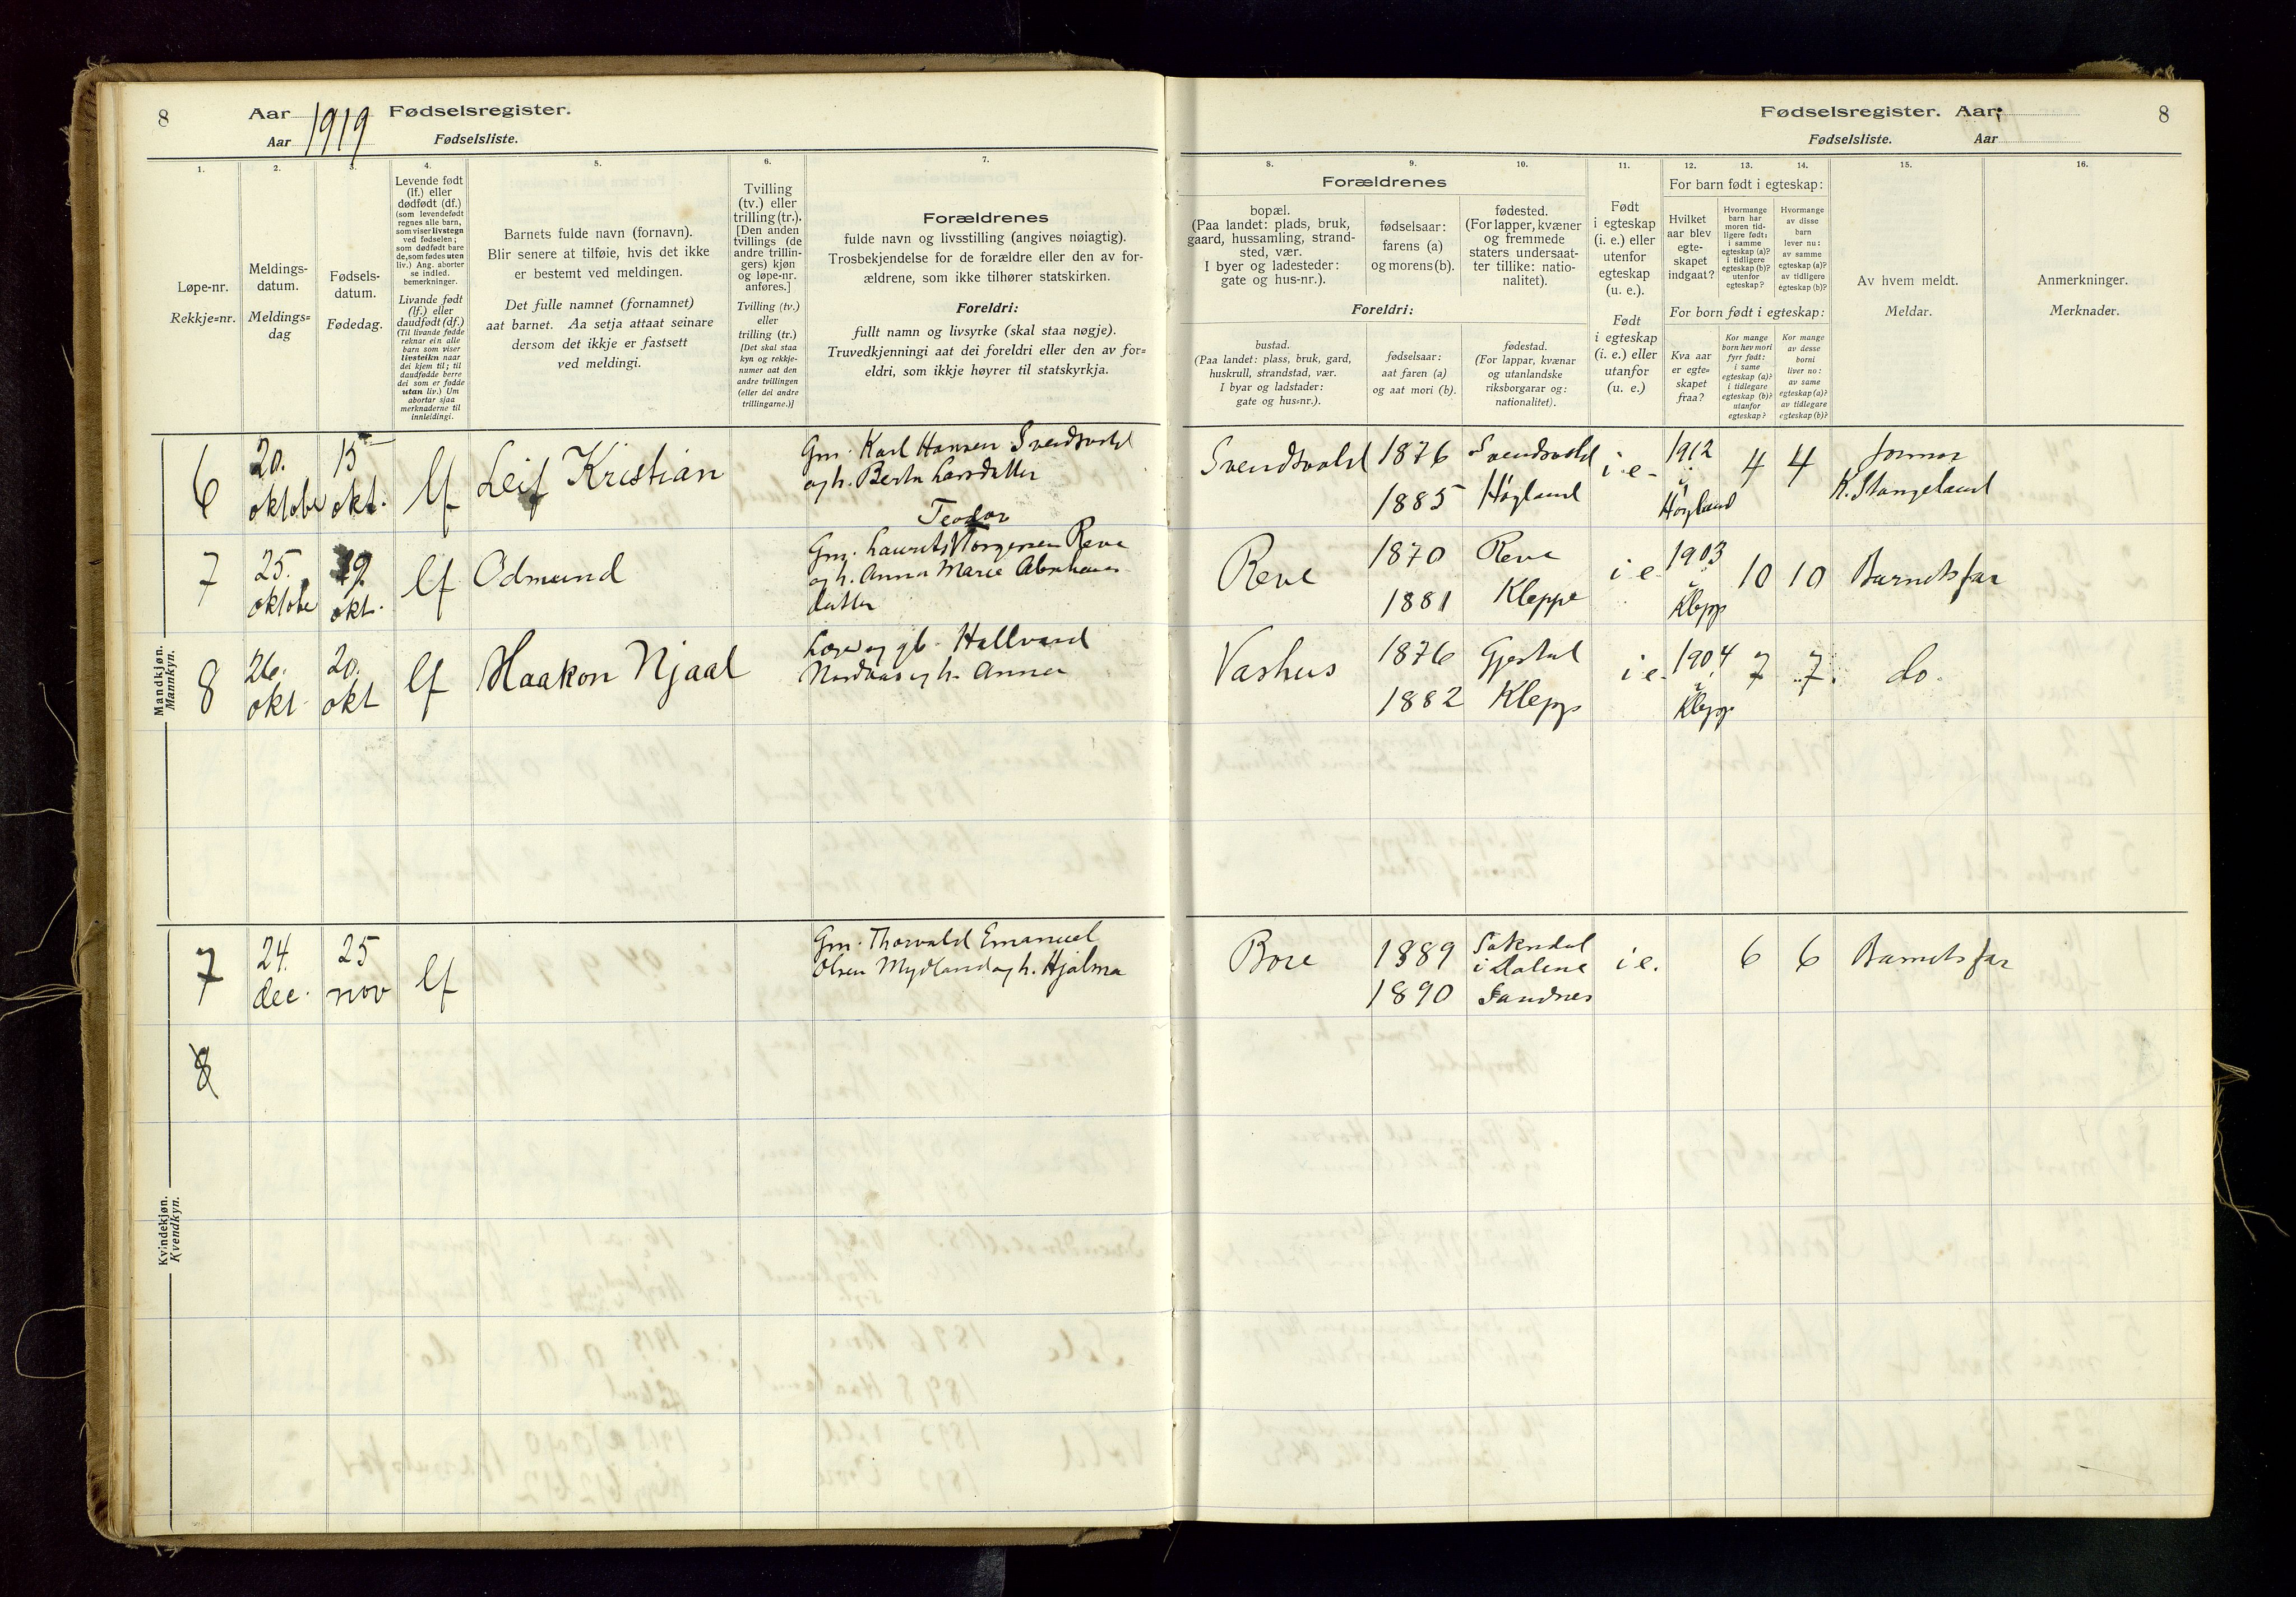 8 Aar 1919 Fødselsregister.
Aar Fødselsliste.
1.
Løpe-nr.
Rekkje=nr.
2.
Meldings-
datum.
Meldings=
dag
3.
Fødsels-
datum.
Fødedag.
4.
Levende født
(lf.) eller
dødfødt (df.)
(som levendefødt
regnes alle barn,
som viser livstegn
ved fødselen;
som dødfødt bare
de, som fødes uten
liv.) Ang. aborter
se indled.
bemerkninger.
Livande født
(lf.) eller
daudfødt (df.)
(Til livande fødde
reknar ein alle
barn som viser
livsteikn naar
dei kjem til; til
daudfødde berre
dei som er fødde
utan liv.) Um
abortar sjaa
merknaderne til
innleidingi.
5.
Barnets fulde navn (fornavn).
Blir senere at tilføie, hvis det ikke
er bestemt ved meldingen.
Det fulle namnet (fornamnet)
aat barnet. Aa setja attaat seinare
dersom det ikkje er fastsett
ved meldingi.
6.
Tvilling
(tv.) eller
trilling (tr.).
[Den anden
tvillings (de
andre trillin-
gers) kjøn
og løpe-nr.
anføres.]
Tvilling (tv.)
eller
trilling (tr.)
[Det skal staa
kyn og rekkje-
numer aat den
andre tvillingen
(eller dei andre
trillingarne.)]
7.
Forældrenes
fulde navn og livsstilling (angives nøiagtig).
Trosbekjendelse for de forældre eller den av for-
ældrene, som ikke tilhører statskirken.
Foreldri:
fullt namn og livsyrke (skal staa nøgje).
Truvedkjenningi aat dei foreldri eller den av for=
eldri, som ikkje høyrer til statskyrkja.
Mandkjøn.
Mannkyn.
6 20. oktobe 15 okt. lf Leif Kristian
Gm. Karl Hansen Svendsvold
og h. Berta Larsdatter
7 25. oktobe 19. okt. lf Odmund
Teodor
Gm. Laurits Torgersen Reve
og h. Anna Marie Abraham
datter
8 26. okt. 20. okt lf Haakon Njaal
Hallvard
og h. Anna
Kvindekjøn.
Kvendkyn.
7 24. dec. 25 nov lf
Gm. Thorvald Emanuel
Olsen Mydland og h. Hjalma
8
Fødselsregister. Aar 8
Fødselsliste. Aar
Forældrenes
8.
bopæl.
(Paa landet: plads, bruk,
gaard, hussamling, strand-
sted, vær.
I byer og ladesteder:
gate og hus-nr.).
9.
fødselsaar:
farens (a)
og morens (b).
10.
fødested.
(For lapper, kvæner
og fremmede
staters undersaat-
ter tillike: natio-
nalitet).
Foreldri:
bustad.
(Paa landet: plass, bruk, gard,
huskrull, strandstad, vær.
I byar og ladstader:
gate og hus=nr.).
fødselsaar:
aat faren (a)
og aat mori (b).
fødestad.
(For lappar, kvænar
og utanlandske
riksborgarar og:
nationalitet).
11.
Født
i egteskap
(i. e.) eller
utenfor
egteskap
(u. e.).
Født
i egteskap
(i. e.) eller
utanfor
(u. e.)
12. 13. 14.
For barn født i egteskap:
Hvilket
aar blev
egte-
skapet
indgaat?
Hvormange
barn har
moren tid-
ligere født:
i samme
egteskap (a)?
i tidligere
egteskap (b)?
utenfor
egteskap?
Hvormange
av disse
barn
lever nu:
av samme
egteskap (a)?
av tidligere
egteskap (b)?
For born født i egteskap:
Kva aar
er egte=
skapet
fraa?
Kor mange
born hev mori
fyrr født:
i same
egteskap (a)?
i tidlegare
egteskap (b)?
utanfor
egteskap?
Kor mange
av desse
borni
liver no:
av same
egteskap (a)?
av tidlegare
egteskap (b)?
15.
Av hvem meldt.
Meldar.
16.
Anmerkninger.
Merknader.
Svendsvold 1876 Svendsvold i e. 1912 4 4 Jomor
1885 Høgland i Høyland K. Stangeland
Reve 1870 Reve i e. 1903 10 10 Barnets far
1881 Kleppe i Klepp
Vashus 1876 Gjestal i e. 1904 7 7. do.
1882 Klepp i Klepp
Bore 1889 Sokndal i Dalene i e. 6 6 Barnets far
1890 Sandnes